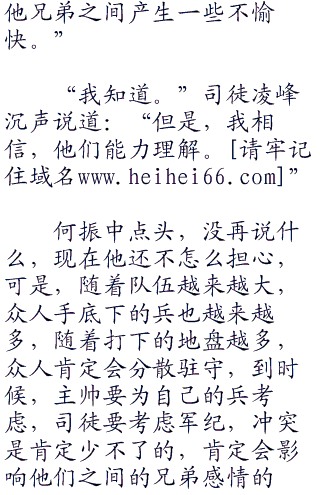 他兄弟之间产生一些不愉
快。”
“我知道。”司徒凌峰
沉声说道：“但是，我相
信，他们能力理解。[请牢记
住域名www.heihei66.com]”
何振中点头，没再说什
么，现在他还不怎么担心，
可是，随着队伍越来越大，
众人手底下的兵也越来越
多，随着打下的地盘越多，
众人肯定会分散驻守，到时
候，主帅要为自己的兵考
虑，司徒要考虑军纪，冲突
是肯定少不了的，肯定会影
响他们之间的兄弟感情的